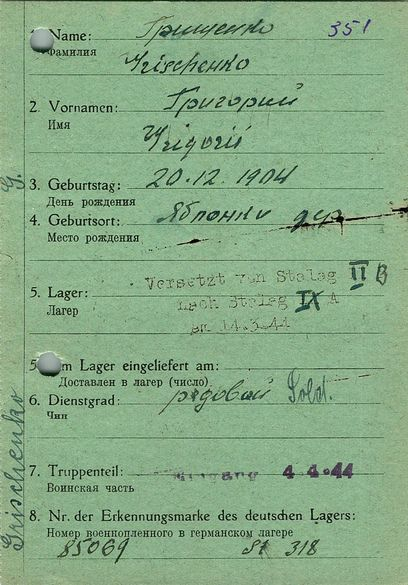 Name: Грищенко 351
Фамилия
Grischenko
2. Vornamen: Григорий
Имя
Grigorii
3. Geburtstag: 20.12.1904
День рождения
4. Geburtsort: Яблонки дер
Место рождения
Versetzt von Stalag II B
5. Lager: nach Stalag IX A
Лагер am 14.3.44
5 m Lager eingeliefert am:
Доставлен в лагер (число)
6. Dienstgrad: рядовой Sold.
Чин
7. Truppenteil: 4 4·44
Воинская часть
8. Nr. der Erkennungsmarke des deutschen Lagers:
Номер военнопленного в германском лагере
85069 St 318
G. Grischenko